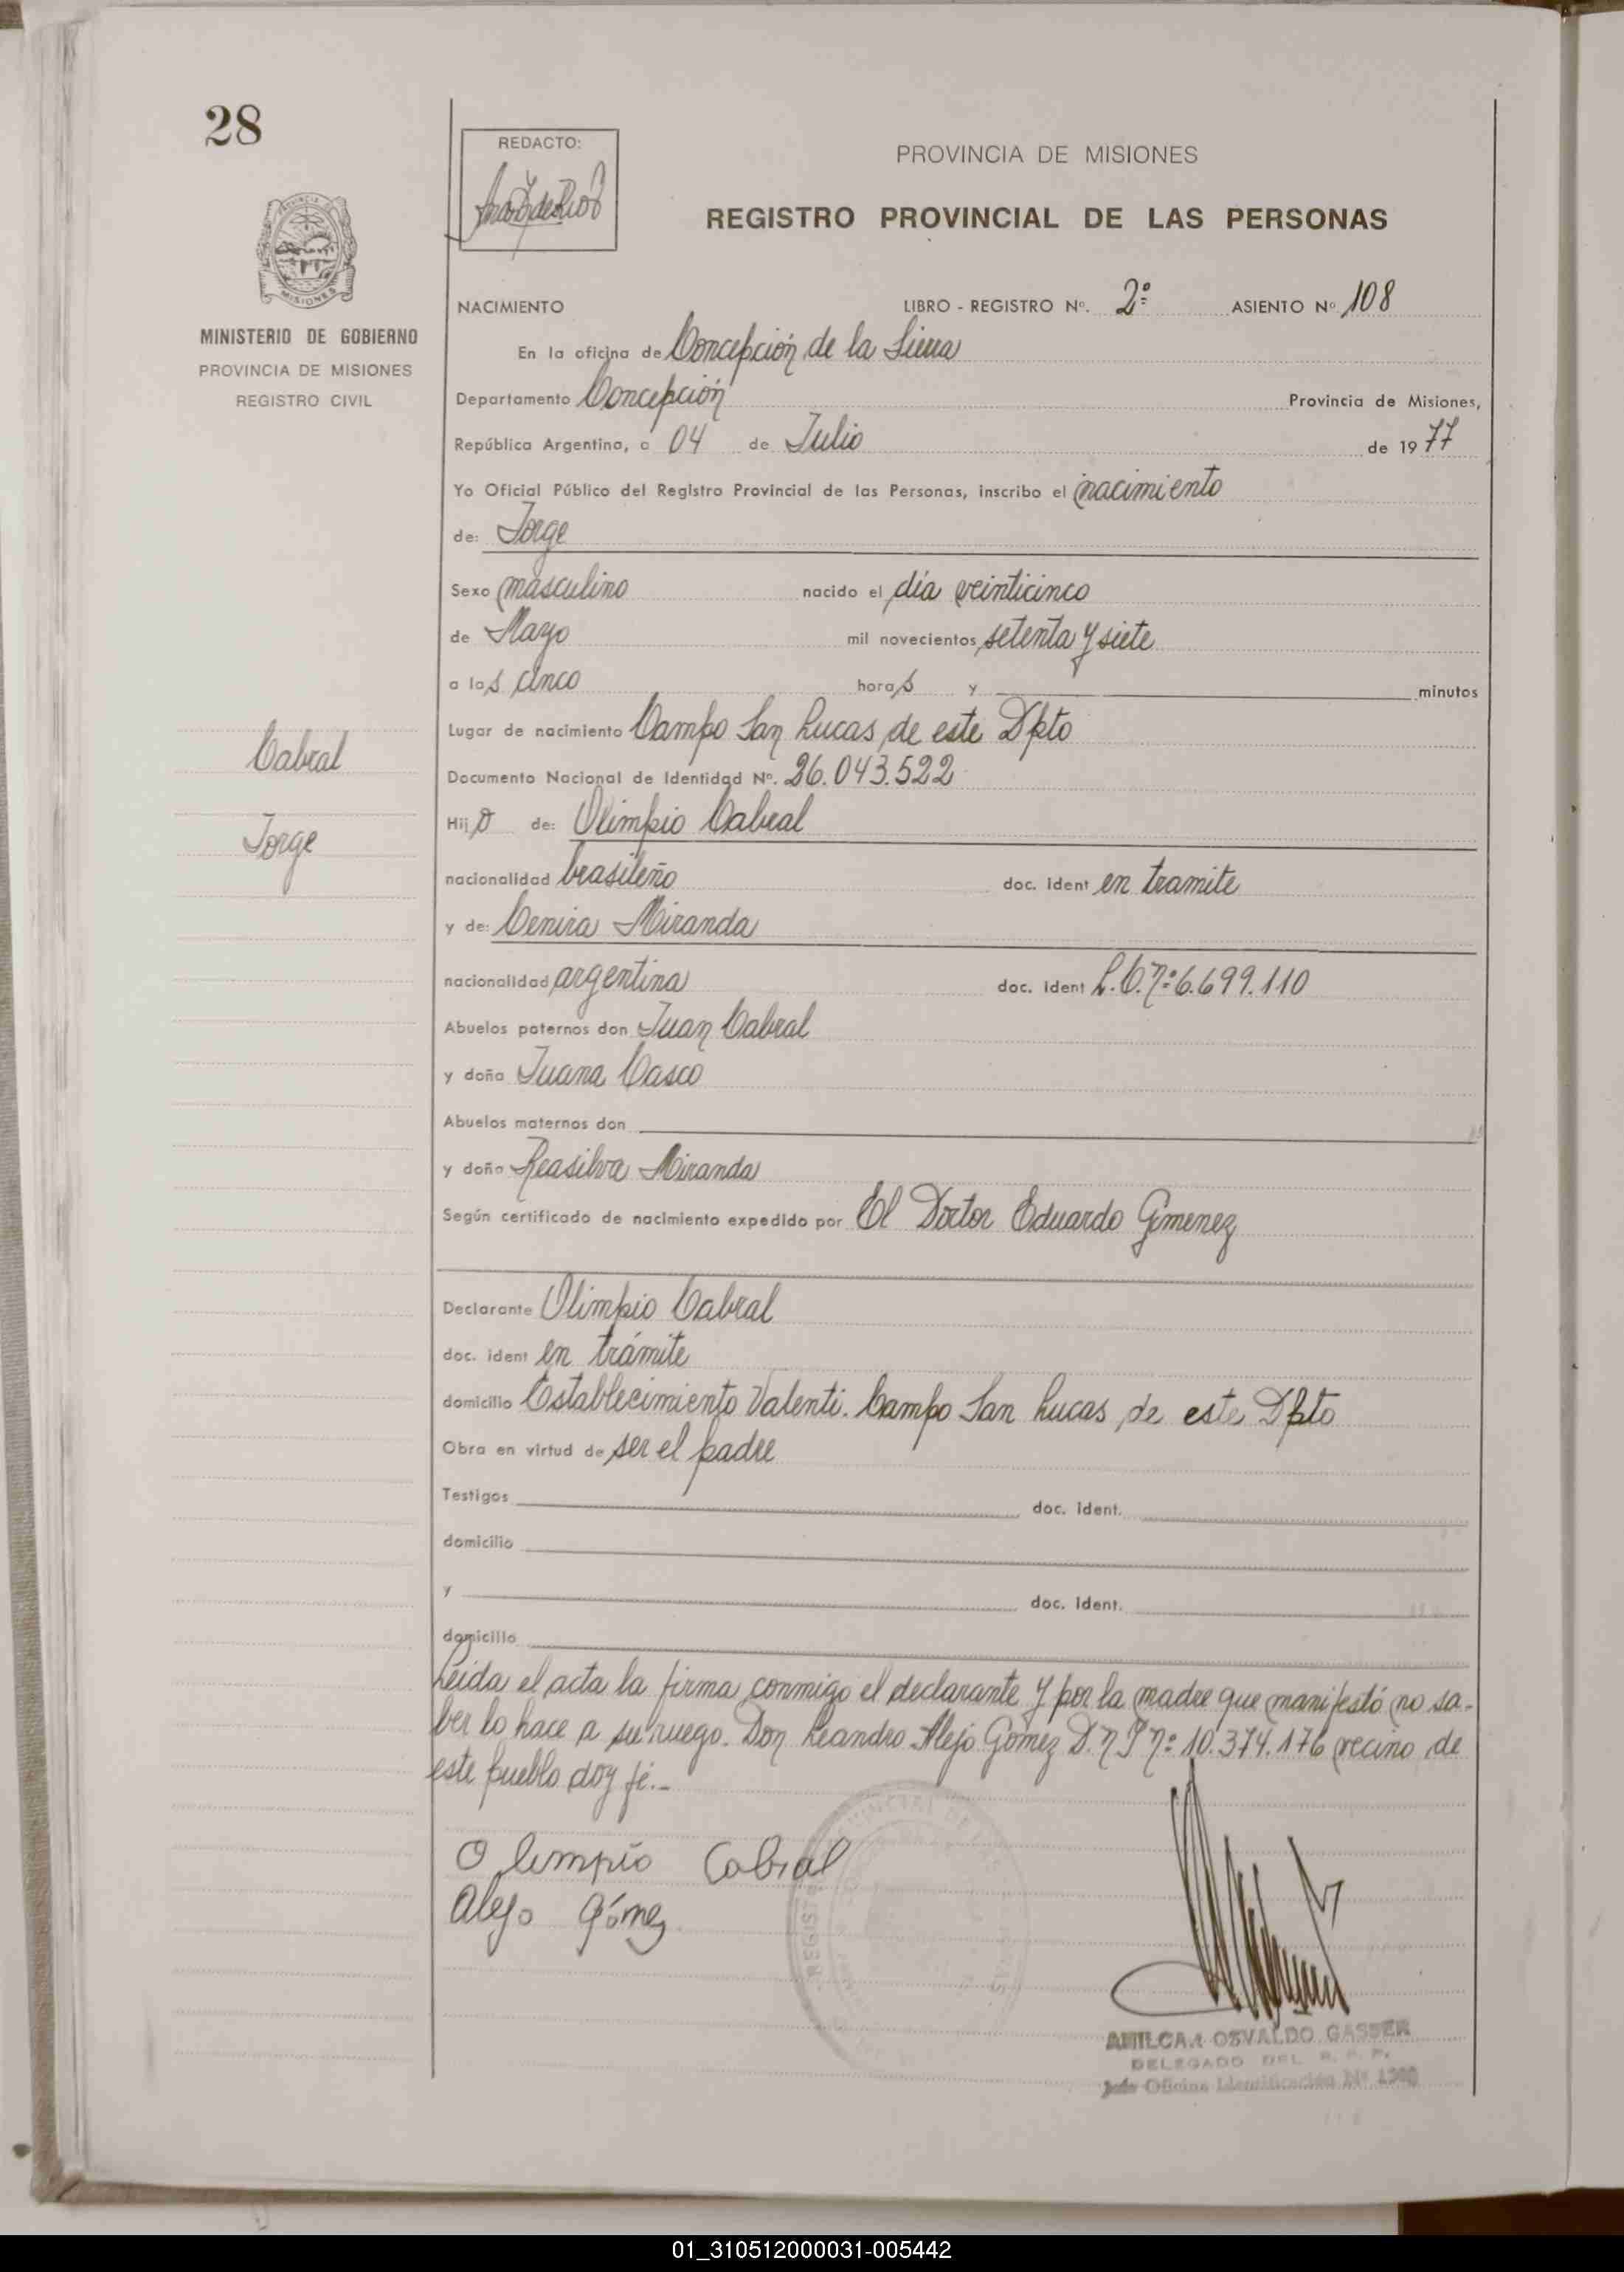 28
REDACTO:
PROVINCIA DE MISIONES
REGISTRO PROVINCIAL DE LAS PERSONAS
MISIONES
MINISTERIO DE GOBIERNO
PROVINCIA DE MISIONES
REGISTRO CIVIL
NACIMIENTO LIBRO - REGISTRO Nº. 2º ASIENTO Nº 108
En la oficina de Concepción de la Sierra
Departamento Concepción Provincia de Misiones,
República Argentina, a 04 de Julio de 1977
Yo Oficial Público del Registro Provincial de las Personas, inscribo el nacimiento
de: Jorge
Sexo masculino nacido el día veinticinco
de Mayo mil novecientos setenta y siete
a las cinco horas y minutos
Lugar de nacimiento Campo San Lucas de este Dpto
Cabral
Documento Nacional de Identidad Nº. 26.043.522
Jorge
Hijo de: Olimpio Cabral
nacionalidad brasileño doc. ident en tramite
y de: Cenira Miranda
nacionalidad argentina doc. ident L.C.nº 6.699.110
Abuelos paternos don Juan Cabral
y doña Juana Casco
Abuelos maternos don
y doña Reasilva Miranda
Según certificado de nacimiento expedido por El Doctor Eduardo Gimenez
Declarante Olimpio Cabral
doc. ident en trámite
domicilio Establecimiento Valenti. Campo San Lucas de este Dpto
Obra en virtud de ser el padre
Testigos doc. ident.
domicilio
y doc. ident.
domicilio
Leida el acta la firma conmigo el declarante y por la madre que manifestó no sa-
ber lo hace a su ruego. Don Leandro Alejo Gómez D.N.I nº 10.374.176 vecino de
este pueblo doy fé.-
Olimpio Cabral
Alejo Gómez
AMILCAR OSVALDO GASSER
DELEGADO DEL R. P. P.
Jefe Oficina Identificación Nº
01_310512000031-005442